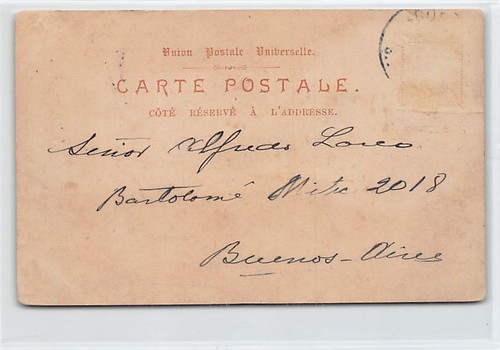 Union Postale Universelle.
CARTE POSTALE.
CÔTÉ RÉSERVÉ À L'ADDRESSE.
Señor Alfredo
Bartolomé Mitre 2018
Buenos-Aires